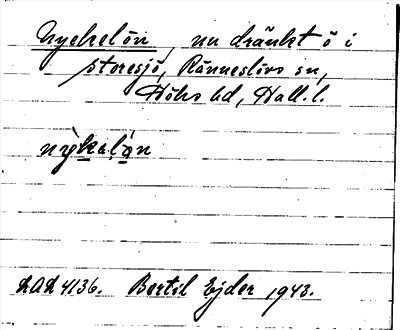 Nyckelön, nu dränkt ö i
Storesjö, Ränneslövs sn,
Höks hd, Hall. l.
nỳkəl̥ǫn
LAL 4136. Bertil Ejder 1943.